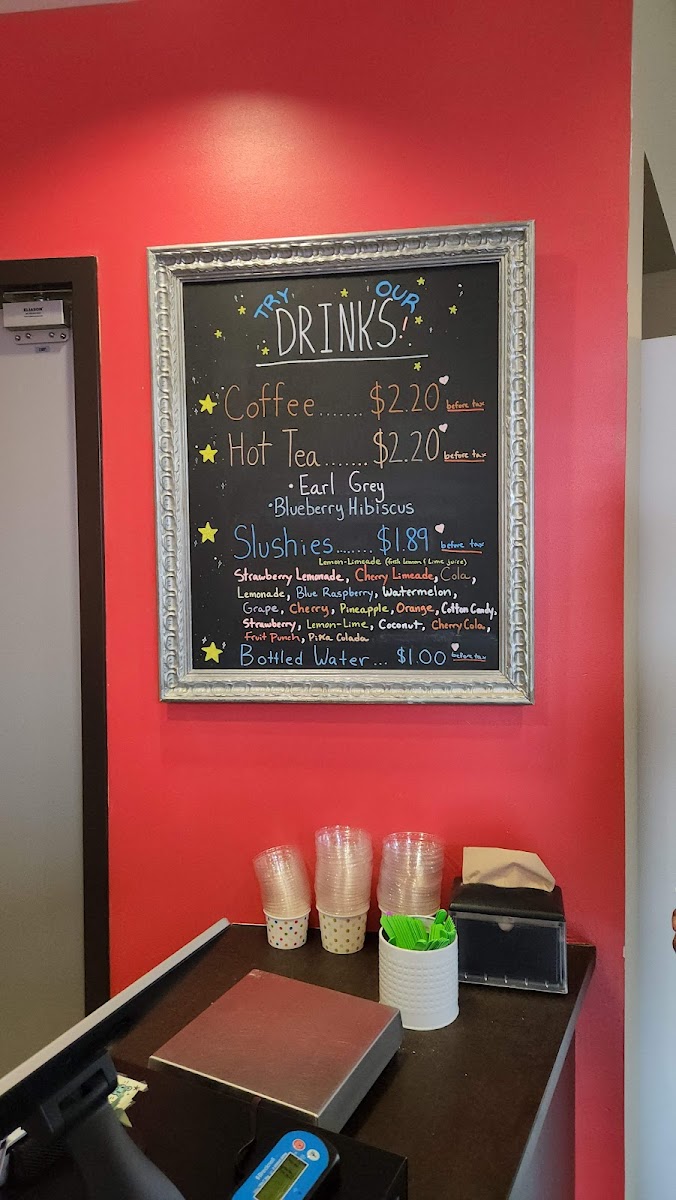 TRY OUR
DRINKS!
Coffee....... $2.20 before tax
Hot Tea....... $2.20 before tax
• Earl Grey
• Blueberry Hibiscus
Slushies....... $1.89 before tax
Lemon-Limeade (fresh lemon & lime juice)
Strawberry Lemonade, Cherry Limeade, Cola,
Lemonade, Blue Raspberry, Watermelon,
Grape, Cherry, Pineapple, Orange, Cotton Candy,
Strawberry, Lemon-Lime, Coconut, Cherry Cola,
Fruit Punch, Piña Colada
Bottled Water... $1.00 before tax